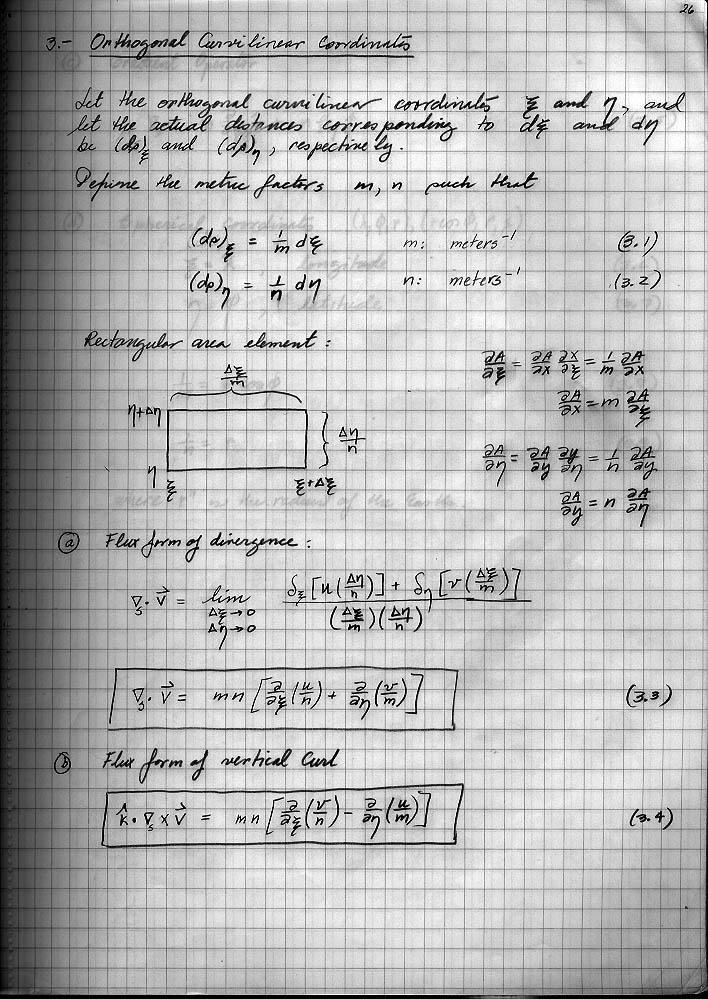 26
3.- Orthogonal Curvilinear Coordinates
Let the orthogonal curvilinear coordinates ξ and η, and
let the actual distances corresponding to dξ and dη
be (ds)_ξ and (ds)_η, respectively.
Define the metric factors m, n such that
(ds)_ξ = 1/m dξ m: meters⁻¹ (3.1)
(ds)_η = 1/n dη n: meters⁻¹ (3.2)
Rectangular area element:
Δξ/m
η+Δη
Δη/n
η
ξ ξ+Δξ
∂A/∂ξ = ∂A/∂x ∂x/∂ξ = 1/m ∂A/∂x
∂A/∂x = m ∂A/∂ξ
∂A/∂η = ∂A/∂y ∂y/∂η = 1/n ∂A/∂y
∂A/∂y = n ∂A/∂η
(a) Flux form of divergence:
∇_s · V⃗ = lim_{Δξ→0, Δη→0} (δ_ξ [u(Δη/n)] + δ_η [v(Δξ/m)]) / ((Δξ/m)(Δη/n))
∇_s · V⃗ = mn [∂/∂ξ (u/n) + ∂/∂η (v/m)] (3.3)
(b) Flux form of vertical Curl
k̂ · ∇_s × V⃗ = mn [∂/∂ξ (v/n) − ∂/∂η (u/m)] (3.4)